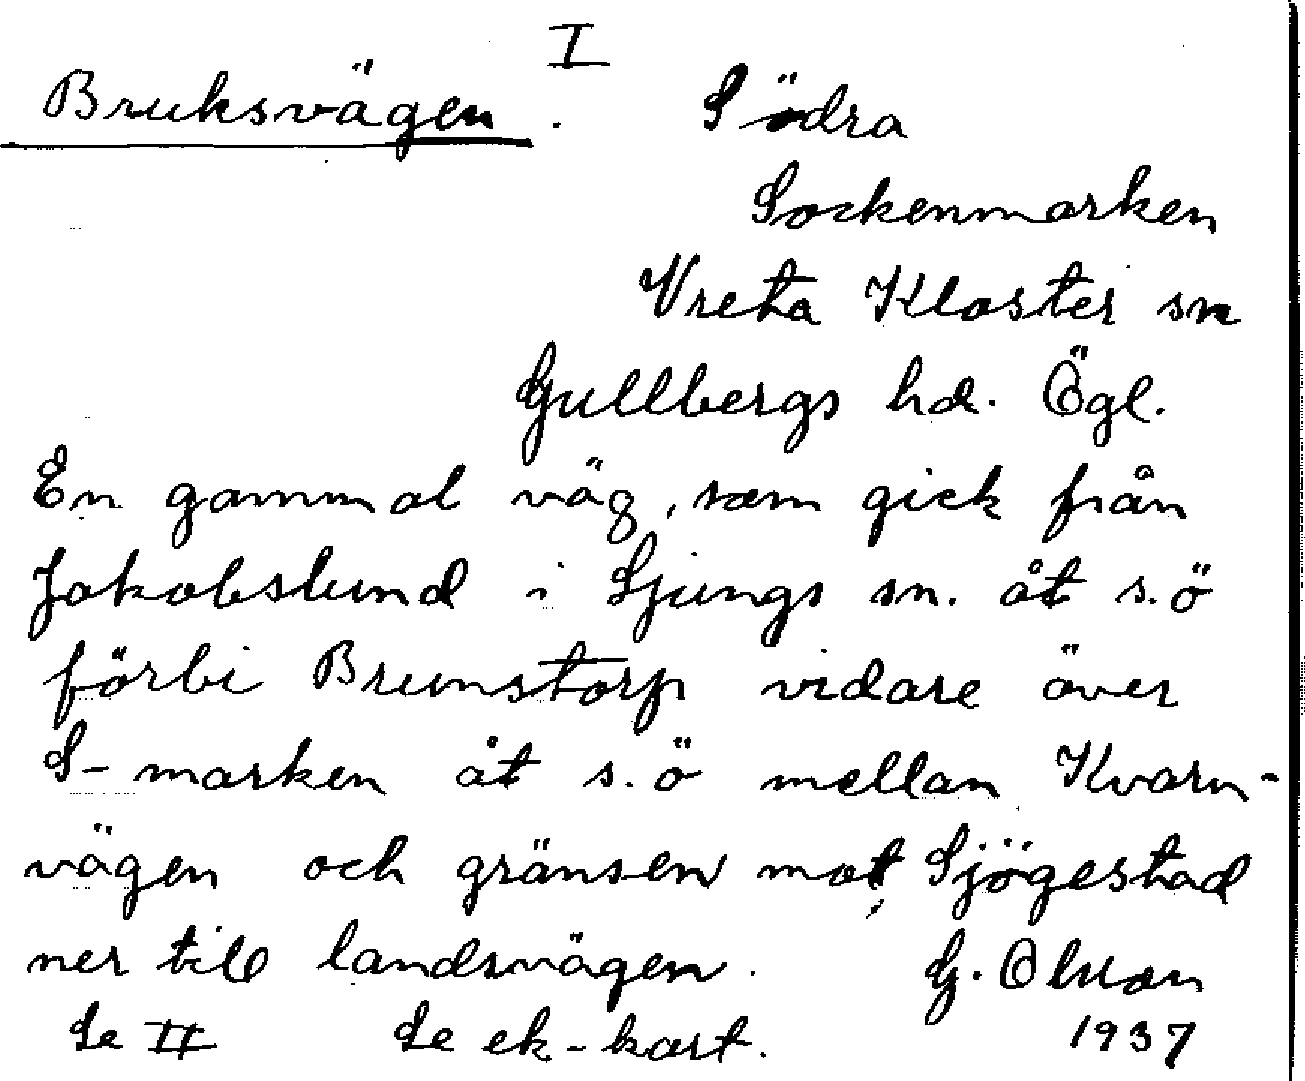 I
Bruksvägen. Södra
Sockenmarken
Vreta Kloster sn
Gullbergs hd. Ögl.
En gammal väg, som gick från
Jakobslund i Ljungs sn. åt s.ö
förbi Brunstorp vidare över
S-marken åt s.ö mellan Kvarn-
vägen och gränsen mot Sjögestad
ner till landsvägen. G. Olsson
Se II Se ek-kart. 1937